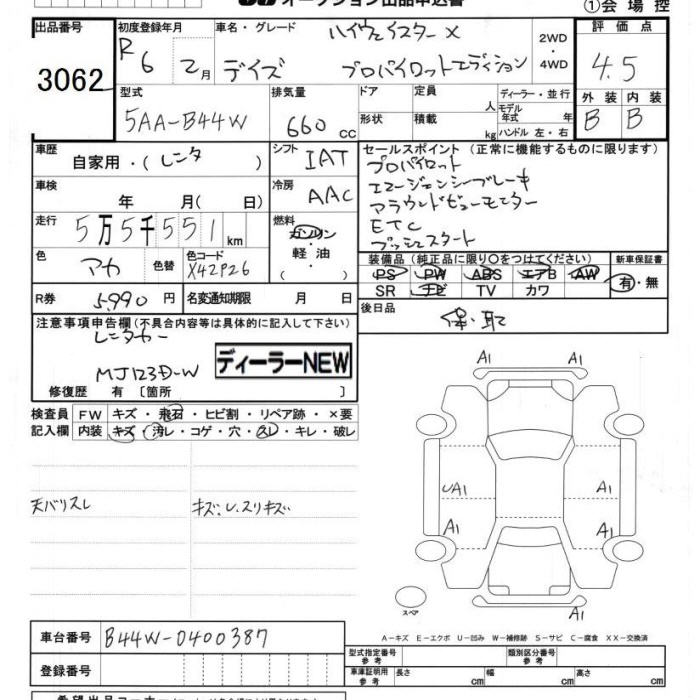 オークション出品申込書
①会場控
出品番号 初度登録年月 車名・グレード ハイウェイスターX 評価点
3062 R6 2月 デイズ プロパイロットエディション 2WD・4WD 4.5
型式 排気量 ドア 定員 人 ディーラー・並行 外装 内装
5AA-B44W 660cc 形状 積載 kg モデル年式 年 ハンドル 左・右 B B
車歴 自家用・(レンタ) シフト IAT セールスポイント (正常に機能するものに限ります)
プロパイロット
車検 年 月(日) 冷房 AAC エマージェンシーブレーキ
アラウンドビューモニター
走行 5万5千551km 燃料 ガソリン・軽油・( ) ETC
プッシュスタート
色 アカ 色替 色コード X42P26 装備品 (純正品に限り○をつけてください) 新車保証書
PS PW ABS エアB AW 有・無
R券 5,990円 名変通知期限 月 日 SR ナビ TV カワ
注意事項申告欄(不具合内容等は具体的に記入して下さい) 後日品
レンタカー 保・取
MJ123D-W ディーラーNEW
修復歴 有 〔箇所 〕
検査員 FW キズ・飛石・ヒビ割・リペア跡・×要
記入欄 内装 キズ・汚レ・コゲ・穴・スレ・キレ・破レ
A1 A1
UA1 A1
天バリスレ キズ、U、スリキズ
A1 A1
スペア A1
A−キズ E−エクボ U−凹み W−補修跡 S−サビ C−腐食 XX−交換済
車台番号 B44W-0400387 型式指定番号 参考 類別区分番号 参考
登録番号 車庫証明用 参考 長さ cm 幅 cm 高さ cm
希望出品コーナー